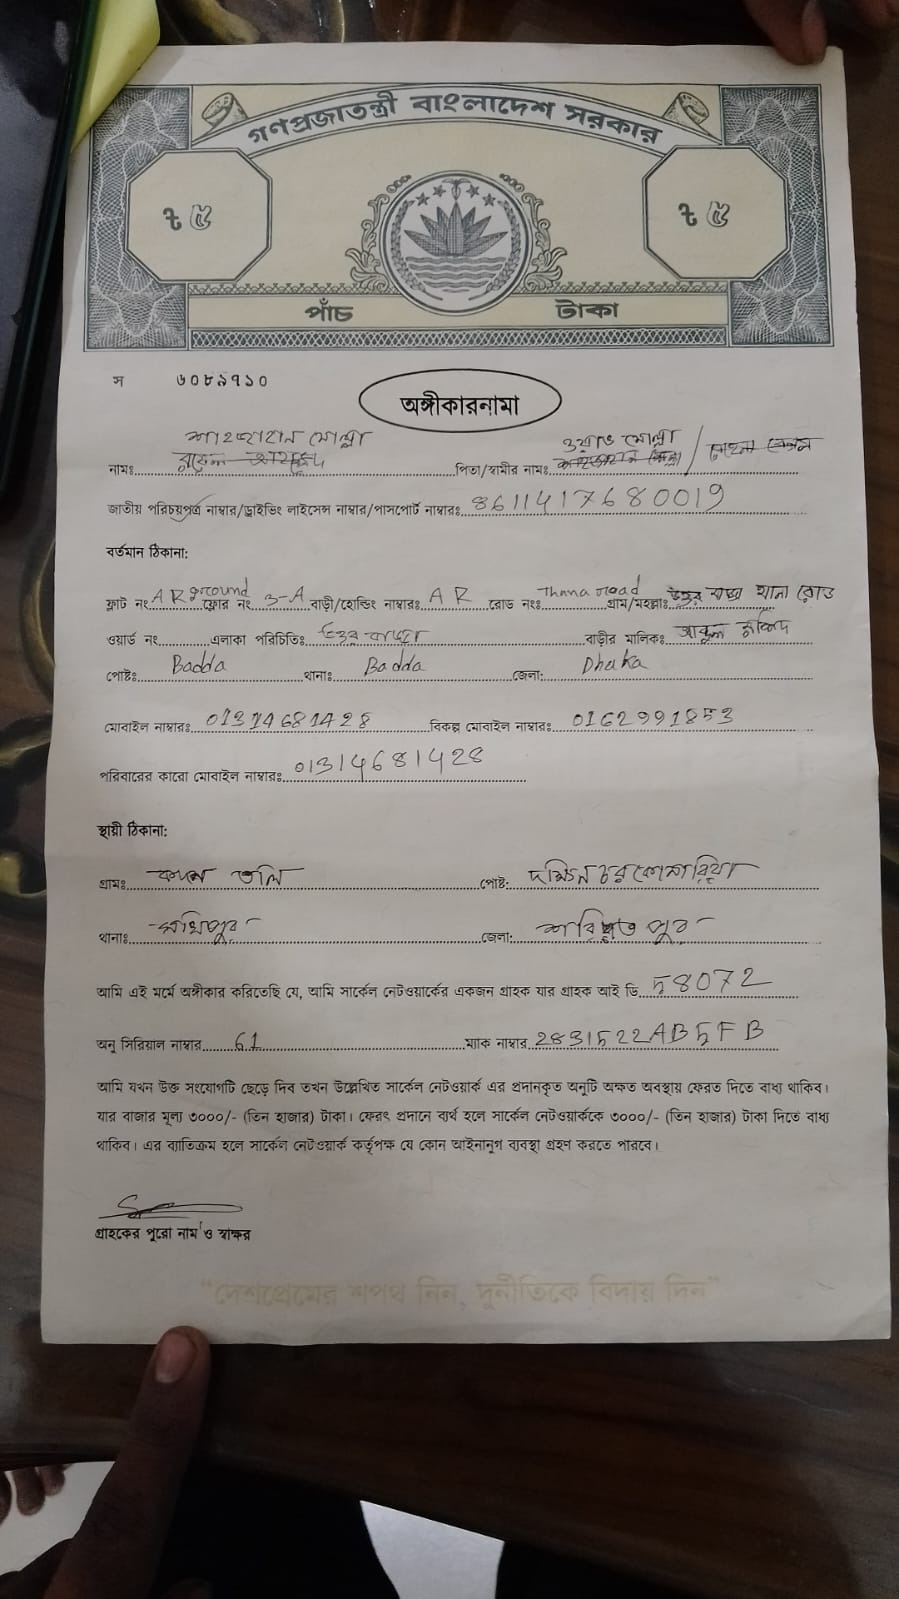 গণপ্রজাতন্ত্রী বাংলাদেশ সরকার
৳ ৫ ৳ ৫
পাঁচ টাকা
স ৬০৮৯৭১০
অঙ্গীকারনামা
শাহজাহান মোল্লা মোল্লা
নামঃ পিতা/স্বামীর নামঃ
জাতীয় পরিচয়পত্র নাম্বার/ড্রাইভিং লাইসেন্স নাম্বার/পাসপোর্ট নাম্বারঃ 8611417680019
বর্তমান ঠিকানা:
ফ্লাট নং AR ground ফ্লোর নং 3-A বাড়ী/হোল্ডিং নাম্বারঃ AR রোড নংঃ Thana road গ্রাম/মহল্লাঃ উত্তর বাড্ডা থানা রোড
ওয়ার্ড নং এলাকা পরিচিতিঃ উত্তর বাড্ডা বাড়ীর মালিকঃ
পোষ্টঃ Badda থানাঃ Badda জেলা: Dhaka
মোবাইল নাম্বারঃ 01314681428 বিকল্প মোবাইল নাম্বারঃ 0162991853
পরিবারের কারো মোবাইল নাম্বারঃ 01314681428
স্থায়ী ঠিকানা:
গ্রামঃ তলি পোষ্ট: দক্ষিন
থানাঃ সখিপুর জেলা: শরিয়তপুর
আমি এই মর্মে অঙ্গীকার করিতেছি যে, আমি সার্কেল নেটওয়ার্কের একজন গ্রাহক যার গ্রাহক আই ডি 58072
অনু সিরিয়াল নাম্বার 61 ম্যাক নাম্বার 2831522AB5FB
আমি যখন উক্ত সংযোগটি ছেড়ে দিব তখন উল্লেখিত সার্কেল নেটওয়ার্ক এর প্রদানকৃত অনুটি অক্ষত অবস্থায় ফেরত দিতে বাধ্য থাকিব।
যার বাজার মূল্য ৩০০০/- (তিন হাজার) টাকা। ফেরৎ প্রদানে ব্যর্থ হলে সার্কেল নেটওয়ার্ককে ৩০০০/- (তিন হাজার) টাকা দিতে বাধ্য
থাকিব। এর ব্যাতিক্রম হলে সার্কেল নেটওয়ার্ক কর্তৃপক্ষ যে কোন আইনানুগ ব্যবস্থা গ্রহণ করতে পারবে।
গ্রাহকের পুরো নাম ও স্বাক্ষর
"দেশপ্রেমের শপথ নিন, দুর্নীতিকে বিদায় দিন"